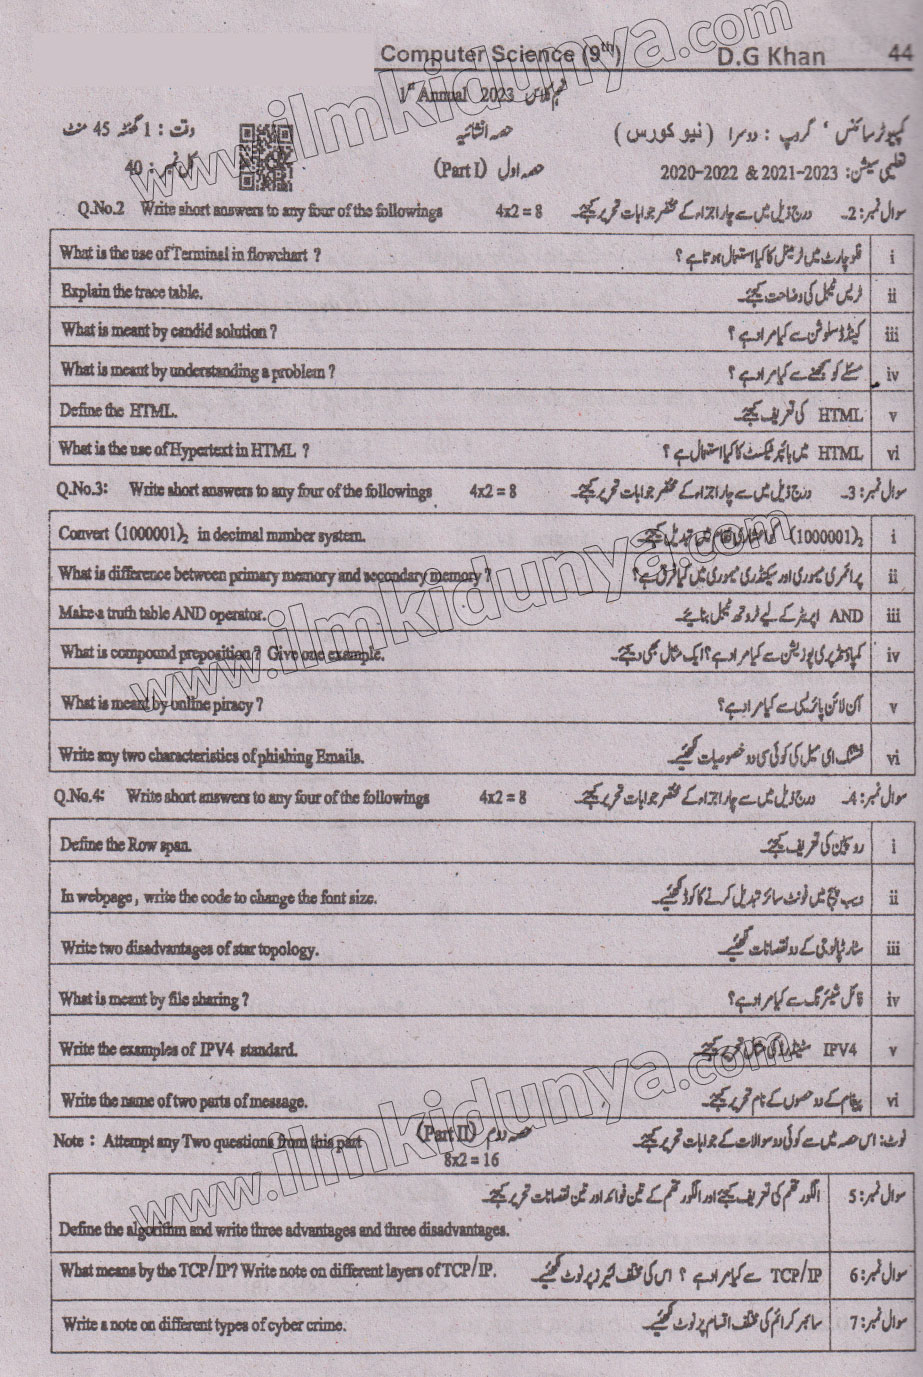 Computer Science (9th) D.G Khan 44
1st Annual 2023 نہم کلاس
کمپیوٹر سائنس ، گروپ : دوسرا (نیو کورس) حصہ انشائیہ وقت : 1 گھنٹہ 45 منٹ
تعلیمی سیشن: 2021-2023 & 2020-2022 حصہ اول (Part I) کل نمبر : 40
Q.No.2 Write short answers to any four of the followings 4x2 = 8 سوال نمبر: 2۔ درج ذیل میں سے چار اجزاء کے مختصر جوابات تحریر کیجئے۔
What is the use of Terminal in flowchart ? فلو چارٹ میں ٹرمینل کا کیا استعمال ہوتا ہے ؟ i
Explain the trace table. ٹریس ٹیبل کی وضاحت کیجئے۔ ii
What is meant by candid solution ? کینڈڈ سلوشن سے کیا مراد ہے ؟ iii
What is meant by understanding a problem ? مسئلے کو سمجھنے سے کیا مراد ہے ؟ iv
Define the HTML. HTML کی تعریف کیجئے۔ v
What is the use of Hypertext in HTML ? HTML میں ہائپر ٹیکسٹ کا کیا استعمال ہے ؟ vi
Q.No.3: Write short answers to any four of the followings 4x2 = 8 سوال نمبر: 3۔ درج ذیل میں سے چار اجزاء کے مختصر جوابات تحریر کیجئے۔
Convert (1000001)2 in decimal number system. (1000001)2 کو اعشاری نظام میں تبدیل کیجئے۔ i
What is difference between primary memory and secondary memory ? پرائمری میموری اور سیکنڈری میموری میں کیا فرق ہے؟ ii
Make a truth table AND operator. AND اپریٹر کے لیے ٹروتھ ٹیبل بنائیے۔ iii
What is compound preposition ? Give one example. کمپاؤنڈ پری پوزیشن سے کیا مراد ہے؟ ایک مثال بھی دیجئے۔ iv
What is meant by online piracy ? آن لائن پائریسی سے کیا مراد ہے؟ v
Write any two characteristics of phishing Emails. فشنگ ای میل کی کوئی سی دو خصوصیات لکھئیے۔ vi
Q.No.4: Write short answers to any four of the followings 4x2 = 8 سوال نمبر: 4۔ درج ذیل میں سے چار اجزاء کے مختصر جوابات تحریر کیجئے۔
Define the Row span. رو سپین کی تعریف کیجئے۔ i
In webpage, write the code to change the font size. ویب پیج میں فونٹ سائز تبدیل کرنے کا کوڈ لکھئیے۔ ii
Write two disadvantages of star topology. سٹار ٹپالوجی کے دو نقصانات لکھئیے۔ iii
What is meant by file sharing ? فائل شیئرنگ سے کیا مراد ہے؟ iv
Write the examples of IPV4 standard. IPV4 سٹینڈرڈ کی مثال تحریر کیجئے۔ v
Write the name of two parts of message. پیغام کے دو حصوں کے نام تحریر کیجئے۔ vi
Note : Attempt any Two questions from this part (Part II) حصہ دوم نوٹ: اس حصہ میں سے کوئی دو سوالات کے جوابات تحریر کیجئے۔
8x2 = 16
سوال نمبر: 5 الگورتھم کی تعریف کیجئے اور الگورتھم کے تین فوائد اور تین نقصانات تحریر کیجئے۔
Define the algorithm and write three advantages and three disadvantages.
What means by the TCP/IP? Write note on different layers of TCP/IP. TCP/IP سے کیا مراد ہے ؟ اس کی مختلف لیئرز پر نوٹ لکھئیے۔ سوال نمبر: 6
Write a note on different types of cyber crime. سائبر کرائم کی مختلف اقسام پر نوٹ لکھئیے۔ سوال نمبر: 7
www.ilmkidunya.com
www.ilmkidunya.com
www.ilmkidunya.com